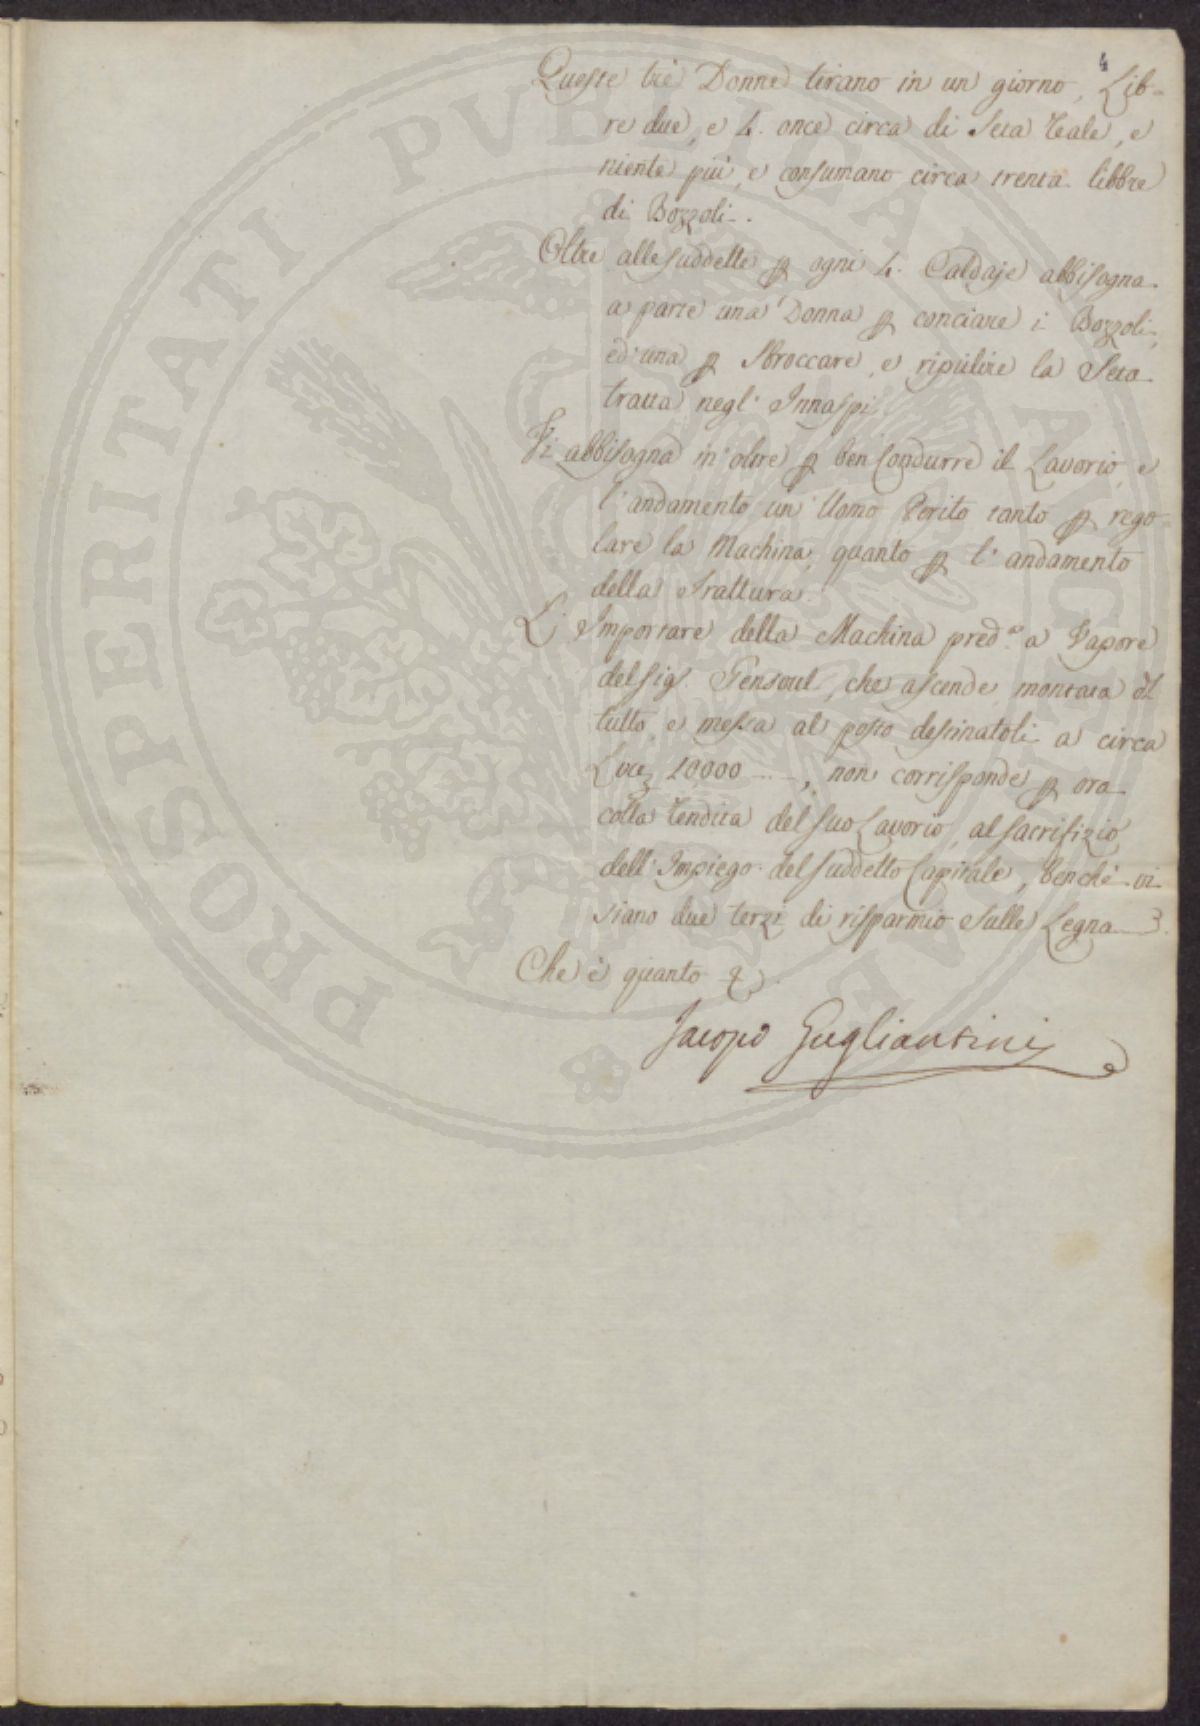 4
Queste trè Donne tirano in un giorno, Lib-
re due, e 4. once circa di Seta Reale, e
niente più, e consumano circa trenta libbre
di Bozzoli.
Oltre alle suddette ꝑ ogni 4. Caldaje abbisogna
a parte una Donna ꝑ conciare i Bozzoli,
ed una ꝑ sbroccare, e ripulire la Seta
tratta negl' Innaspi.
Vi abbisogna in oltre ꝑ ben condurre il Lavorio, e
l' andamento un' Uomo Perito tanto ꝑ rego
lare la Machina, quanto ꝑ l' andamento
della Trattura.
L' Importare della Machina pred.ª a Vapore
del Sig.ʳ Gensoul, che ascende montata di
tutto, e messa al posto destinatoli a circa
Lire 10000 --, non corrisponde ꝑ ora
colla Rendita del suo Lavorio, al sacrifizio
dell' Impiego del suddetto Capitale, benchè vi
siano due terzi di risparmio sulle Legna.
Che è quanto &
Jacopo Gugliantini
PROSPERITATI PVBLICAE AVGENDAE